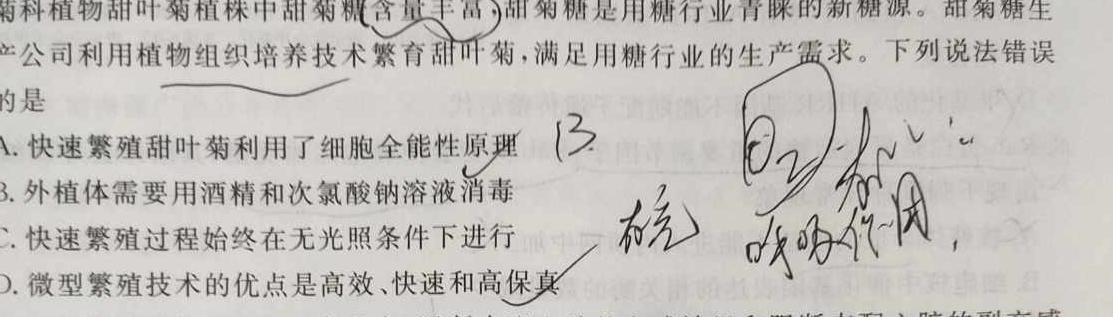 菊科植物甜叶菊植株中甜菊糖含量丰富,甜菊糖是用糖行业青睐的新糖源。甜菊糖生
产公司利用植物组织培养技术繁育甜叶菊,满足用糖行业的生产需求。下列说法错误
的是
A. 快速繁殖甜叶菊利用了细胞全能性原理
B
B. 外植体需要用酒精和次氯酸钠溶液消毒
C. 快速繁殖过程始终在无光照条件下进行
呼吸作用
D. 微型繁殖技术的优点是高效、快速和高保真